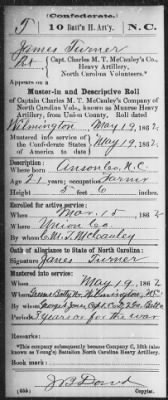 (Confederate.)
T 10 Batt'n H. Art'y. N.C.
James Turner
Pvt, Capt. Charles M. T. McCauley's Co.,
Heavy Artillery,
North Carolina Volunteers.*
Appears on a
Muster-in and Descriptive Roll
of Captain Charles M. T. McCauley's Company of
North Carolina Vols., known as Monroe Heavy
Artillery, from Union County. Roll dated
Wilmington May 19, 1862
Mustered into service of
the Confederate States May 19, 1862
of America
to date
Description:
Where born Anson Co, N.C.
Age 21 years; occupation Farmer
Height 5 feet 6 inches.
Enrolled for active service:
When Mar. 15, 1862
Where Union Co.
By whom C. M. T. McCauley
Oath of allegiance to State of North Carolina:
Signature James Turner
Mustered into service:
When May 19, 1862
Where Wilmington, N.C.
By whom
Period 3 years or for the war
*This company subsequently became Company
known as Young's) Battalion North Carolina Heavy Artillery.